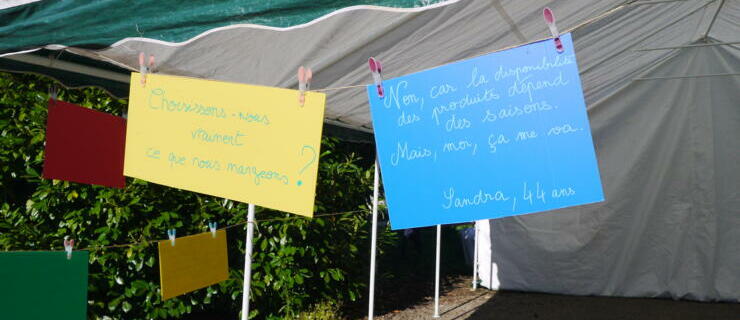 Choisissons-nous
vraiment
ce que nous mangeons ?
Non, car la disponibilité
des produits dépend
des saisons.
Mais, moi, ça me va.
Sandra, 44 ans